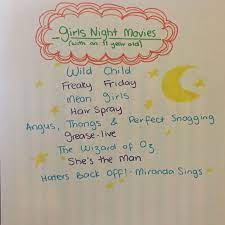 Girls Night Movies
(with an 11 year old)
Wild Child
Freaky Friday
Mean girls
Hair Spray
Angus, Thongs & Perfect Snogging
Grease-live
The Wizard of Oz
She's the Man
Haters Back Off!- Miranda Sings